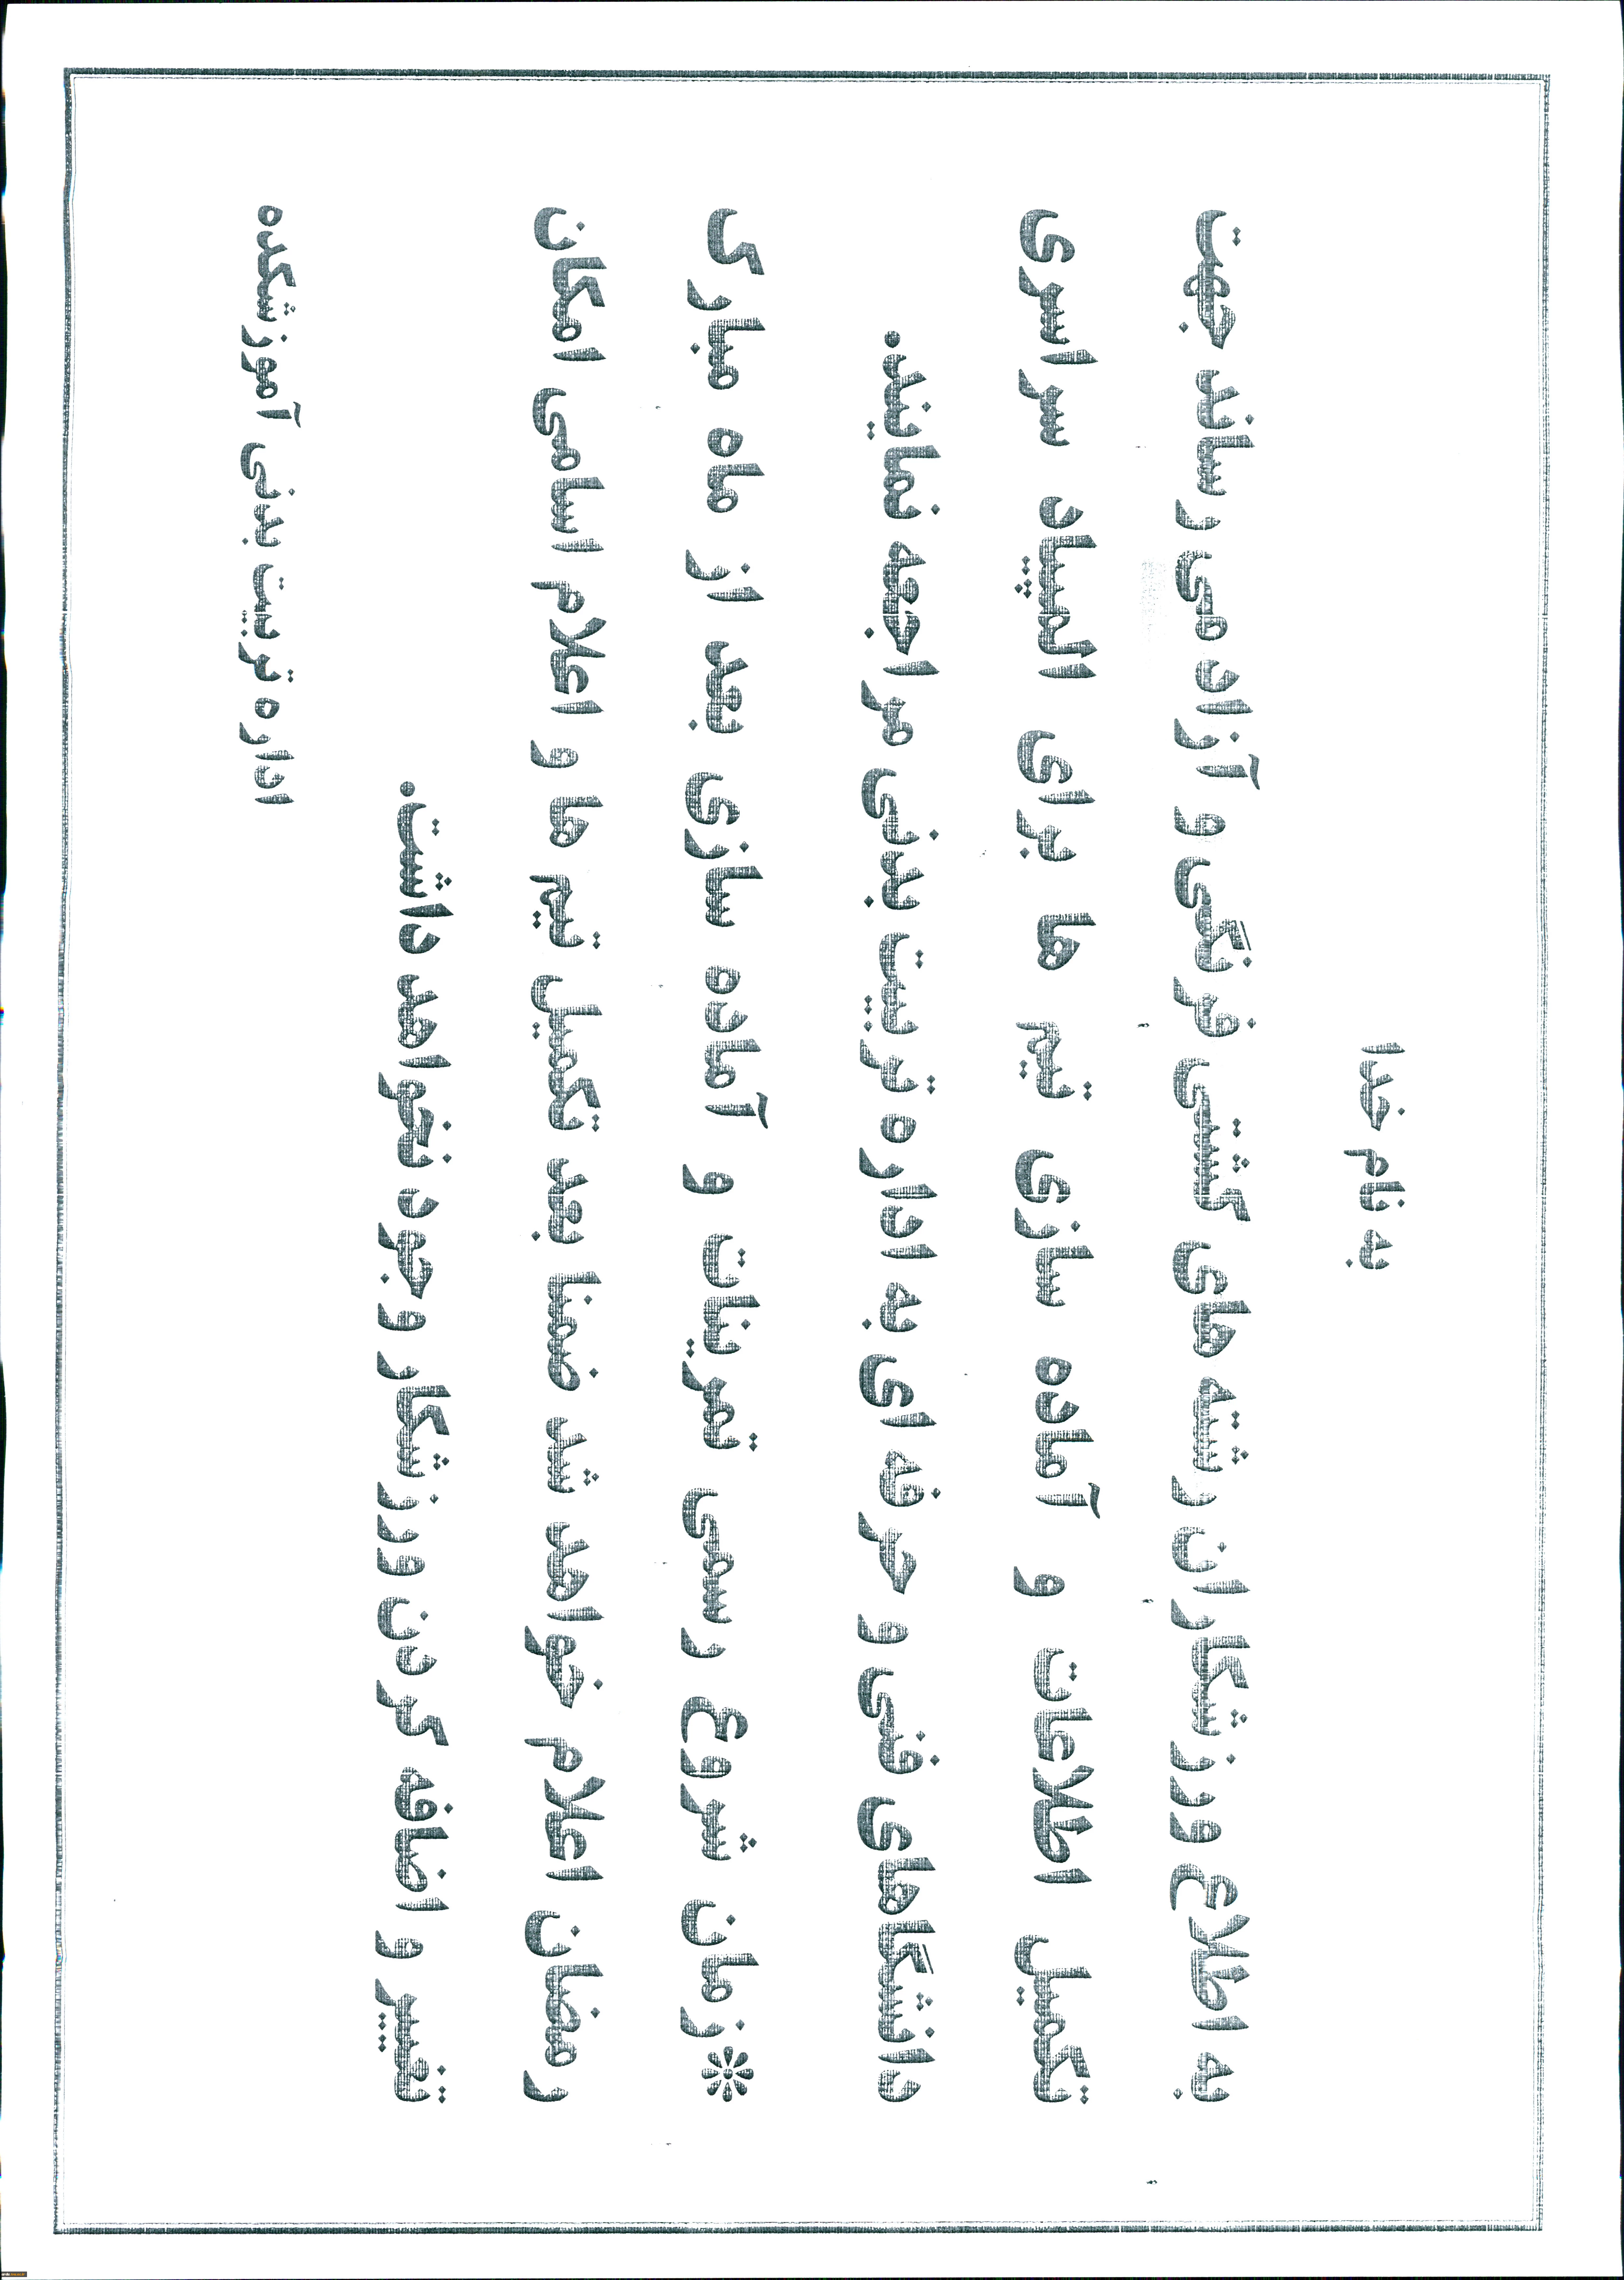 به نام خدا
به اطلاع ورزشکاران رشته های کشتی فرنگی و آزاد می رساند جهت
تکمیل اطلاعات و آماده سازی تیم ها برای المپیاد سراسری
دانشگاهای فنی و حرفه ای به اداره تربیت بدنی مراجعه نمایند.
*زمان شروع رسمی تمرینات و آماده سازی بعد از ماه مبارک
رمضان اعلام خواهد شد ضمنا بعد تکمیل تیم ها و اعلام اسامی امکان
تغییر و اضافه کردن ورزشکار وجود نخواهد داشت.
اداره تربیت بدنی آموزشکده